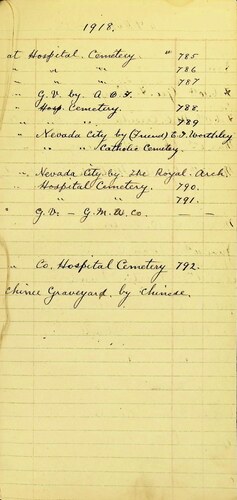 1918.
at Hospital Cemetery " 785
" " " " 786
" " " " 787
" G. V. by A. B. F. "
" Hosp. Cemetery. 788.
" " " 789
" Nevada City by (Friend) E. T. Worthley
" " " Catholic Cemetey.
" Nevada City by The Royal Arch.
" Hospital Cemetery. 790.
" " " 791.
" G. V. – G. M. & Co. — —
" Co. Hospital Cemetery 792.
Chinee Graveyard. by Chinese.